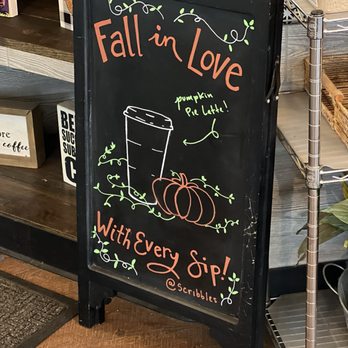 Fall in Love
pumpkin
Pie Latte!
With Every Sip!
@Scribbles
coffee